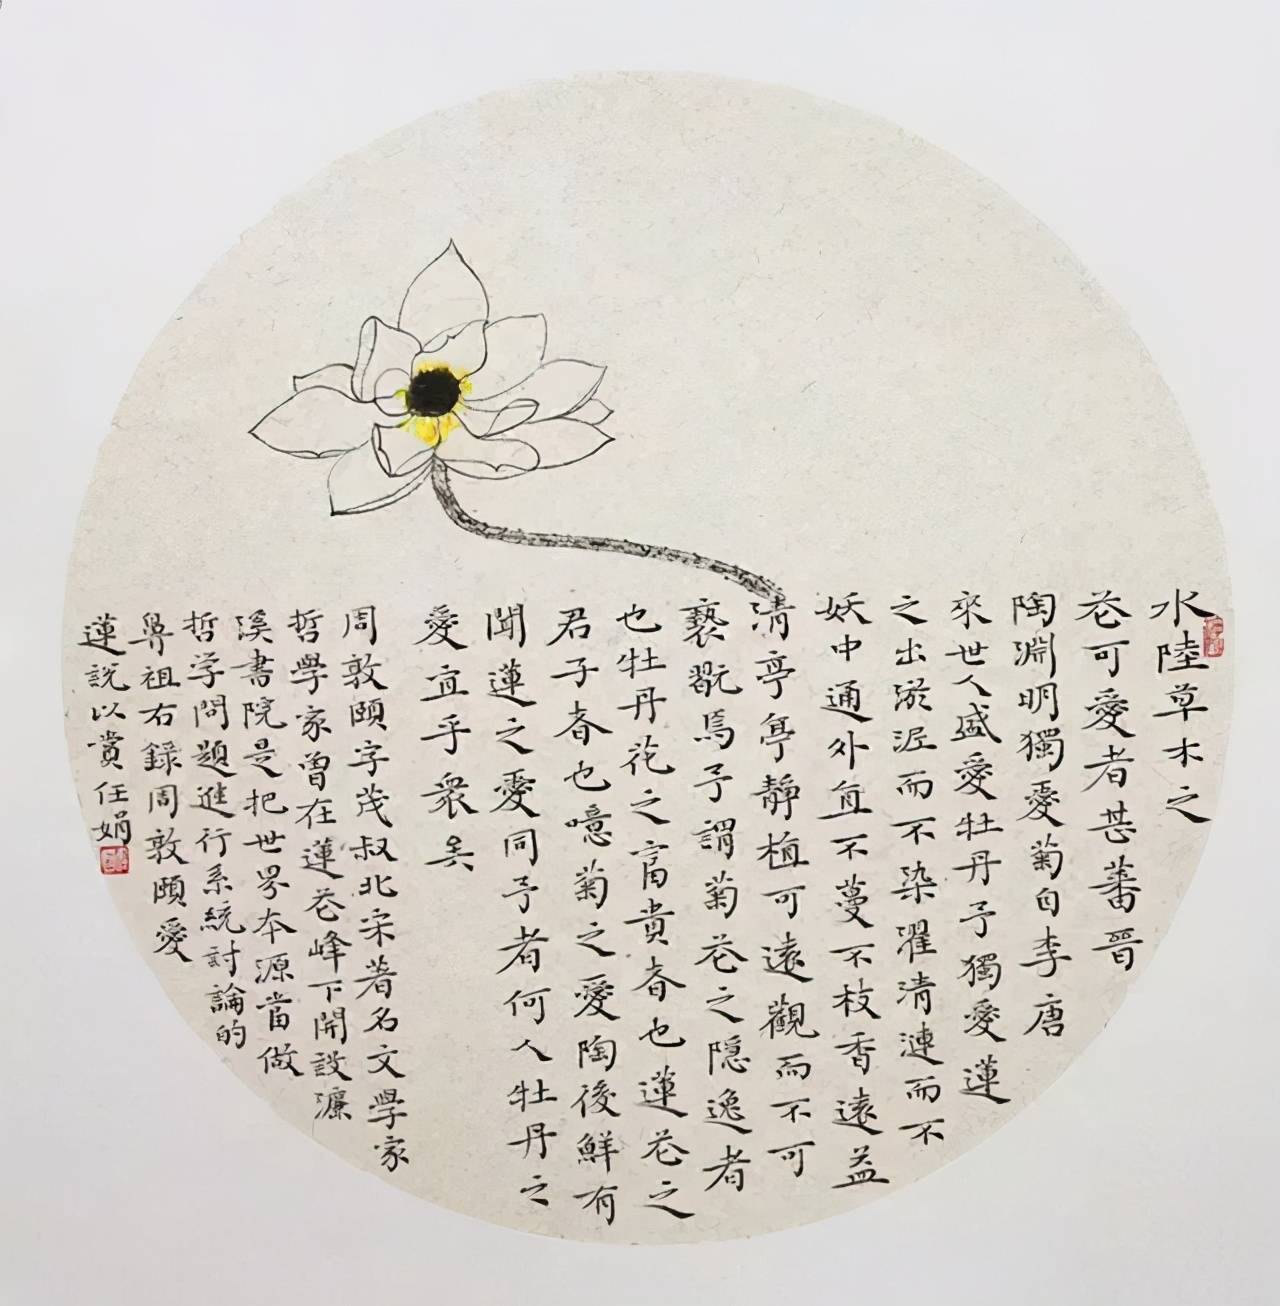 水陸草木之
花可愛者甚蕃晉
陶淵明獨愛菊自李唐
來世人盛愛牡丹予獨愛蓮
之出淤泥而不染濯清漣而不
妖中通外直不蔓不枝香遠益
清亭亭靜植可遠觀而不可
褻翫焉予謂菊花之隱逸者
也牡丹花之富貴者也蓮花之
君子者也噫菊之愛陶後鮮有
聞蓮之愛同予者何人牡丹之
愛宜乎衆矣
周敦頤字茂叔北宋著名文學家
哲學家曾在蓮花峰下開設濂
溪書院是把世界本源當做
哲学問題進行系統討論的
鼻祖右錄周敦頤愛
蓮說以賞任娟